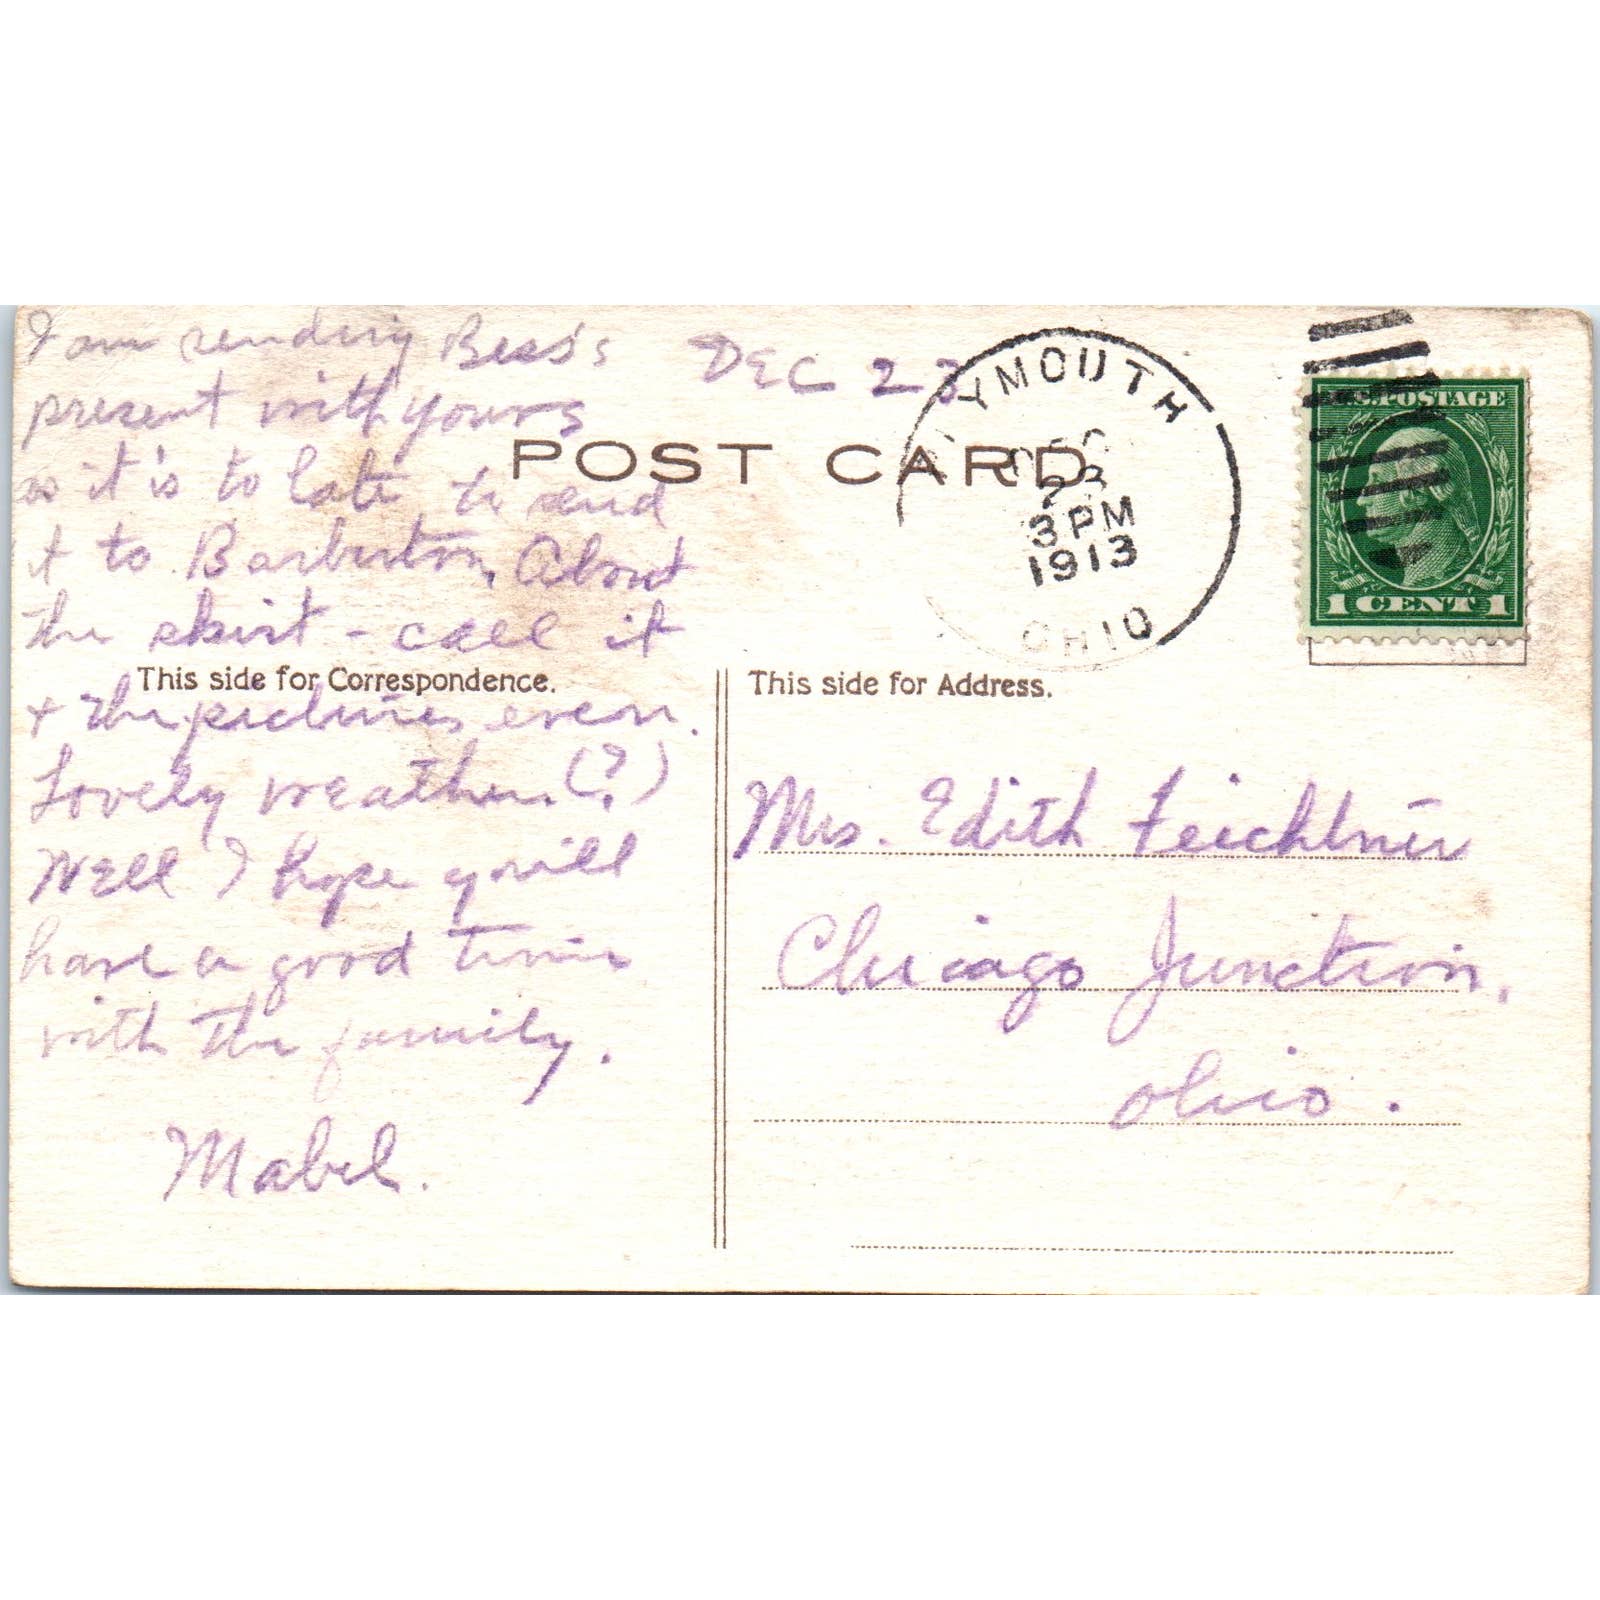 I am sending Bess's
present with yours
as it is to late to send
it to Barberton. About
the skirt - call it
+ the pictures even.
Lovely weather. (?)
Well I hope y will
have a good time
with the family.
Mabel.
DEC 23
POST CARD
PLYMOUTH
DEC
23
3 PM
1913
OHIO
U.S. POSTAGE
1 CENT 1
This side for Correspondence.
This side for Address.
Mrs. Edith Feichtner
Chicago Junction,
Ohio.